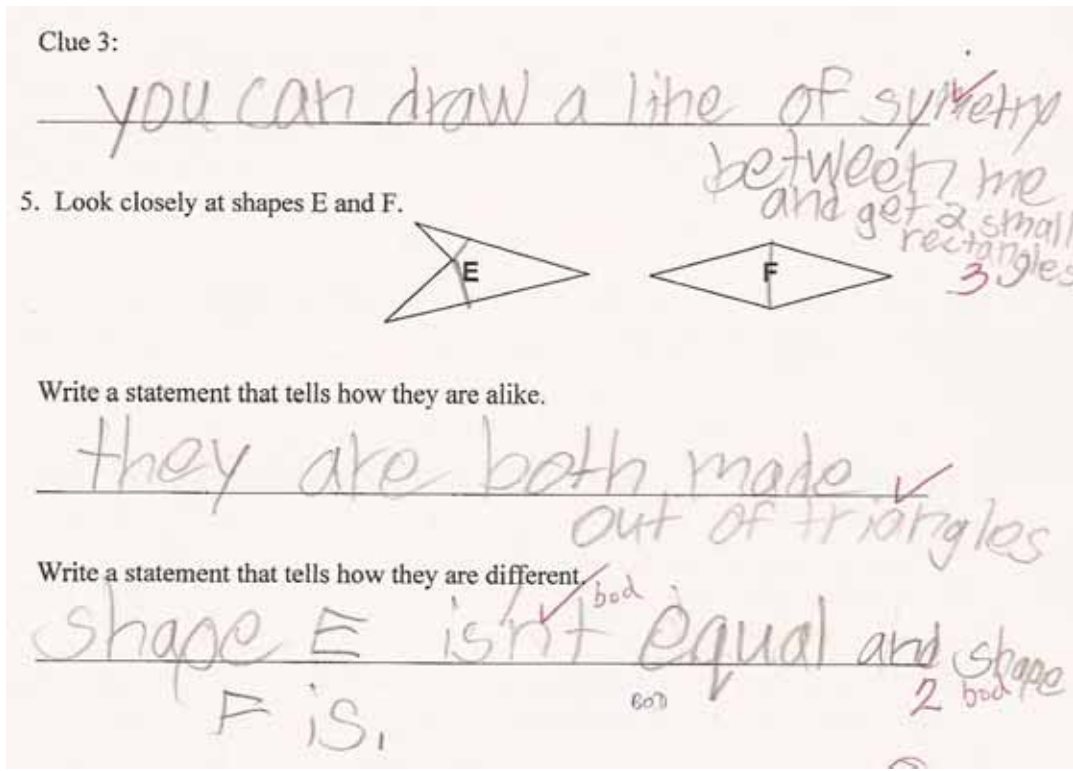 Clue 3:
you can draw a line of symetry
between me
and get 2 small
rectangles
3
5. Look closely at shapes E and F.
E
F
Write a statement that tells how they are alike.
they are both made
out of triangles
Write a statement that tells how they are different.
bod
shape E isn't equal and shape
F is.
BOD
2 bod